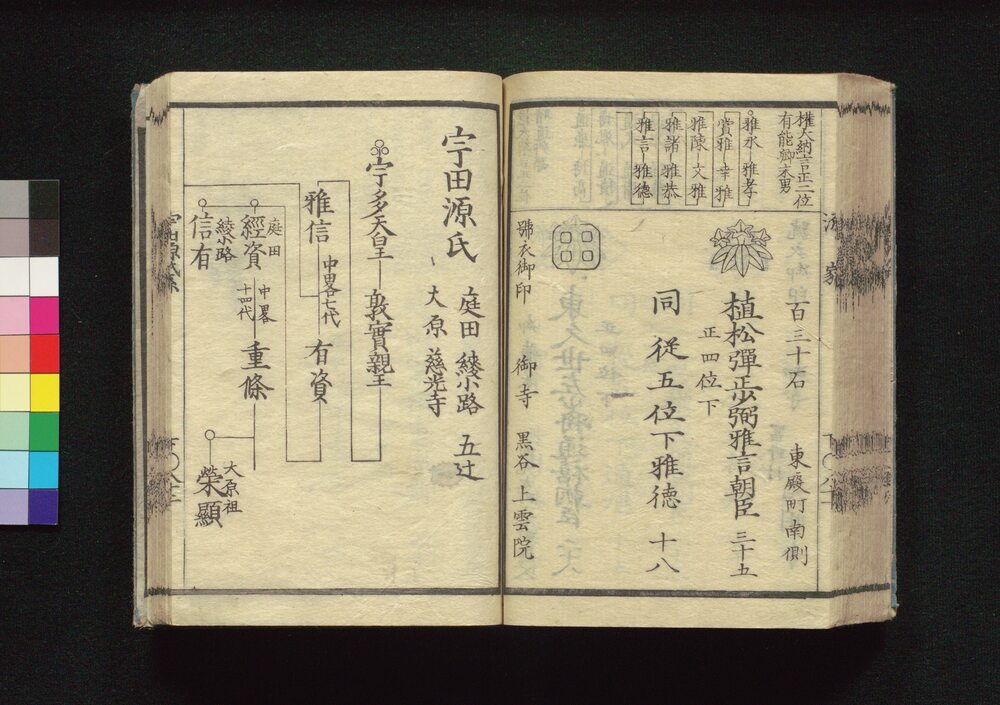 權大納言正二位
有能卿末男
雅永 雅孝
賞雅 幸雅
雅陳 文雅
雅諸 雅恭
雅言 雅德
百三十石 東殿町南側
植松彈正少弼雅言朝臣 三十五
正四位下
同 從五位下雅徳 十八
號衣御印 御寺 黒谷 上雲院
宇田源氏
庭田 綾小路 五辻
大原 慈光寺
宇多天皇 敦實親王
雅信 中畧七代 有資
庭田 經資 中畧十四代 重條
綾小路 信有
大原祖 榮顯